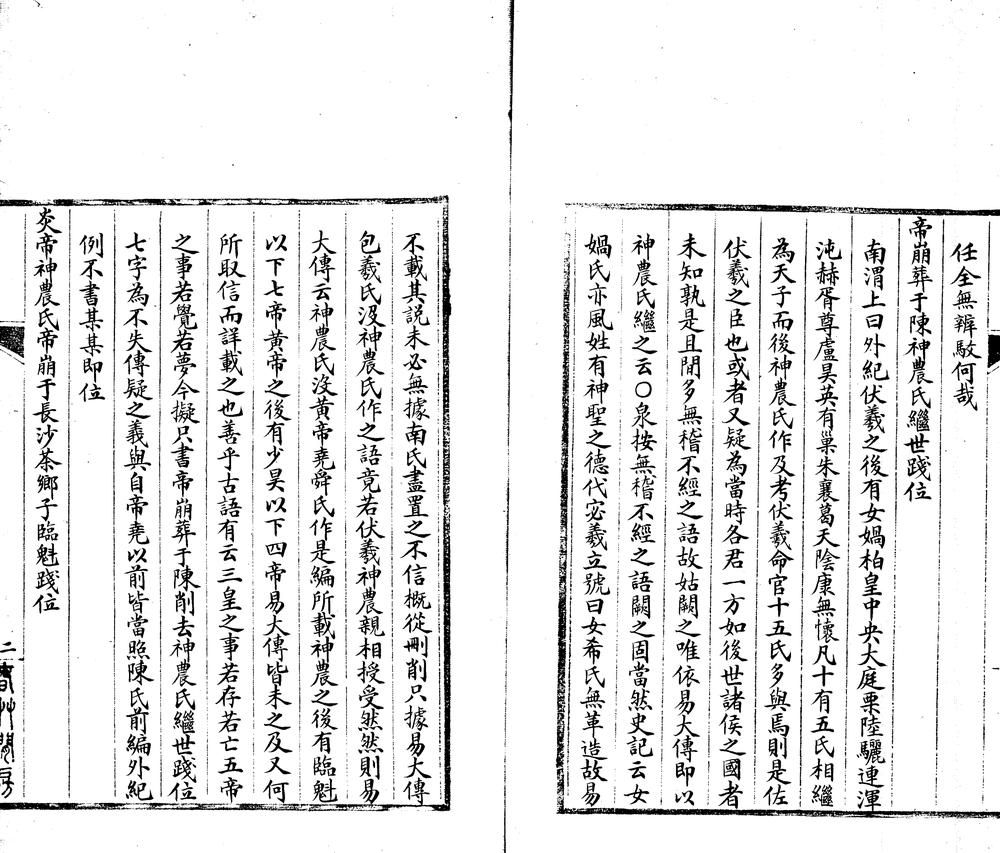 任全無辨駮何哉
帝崩葬于陳神農氏繼世踐位
南渭上曰外紀伏羲之後有女媧柏皇中央大庭栗陸驪連渾
沌赫胥尊盧昊英有巢朱襄葛天陰康無懷凡十有五氏相繼
為天子而後神農氏作及考伏羲命官十五氏多與焉則是佐
伏羲之臣也或者又疑為當時各君一方如後世諸侯之國者
未知孰是且閒多無稽不經之語故姑闕之唯依易大傳即以
神農氏繼之云○泉按無稽不經之語闕之固當然史記云女
媧氏亦風姓有神聖之德代宓羲立號曰女希氏無革造故易
不載其說未必無據南氏盡置之不信概從刪削只據易大傳
包羲氏沒神農氏作之語竟若伏羲神農親相授受然然則易
大傳云神農氏沒黃帝堯舜氏作是編所載神農之後有臨魁
以下七帝黃帝之後有少昊以下四帝易大傳皆未之及又何
所取信而詳載之也善乎古語有云三皇之事若存若亡五帝
之事若覺若夢今擬只書帝崩葬于陳削去神農氏繼世踐位
七字為不失傳疑之義與自帝堯以前皆當照陳氏前編外紀
例不書某某即位
炎帝神農氏帝崩于長沙茶鄉子臨魁踐位
二